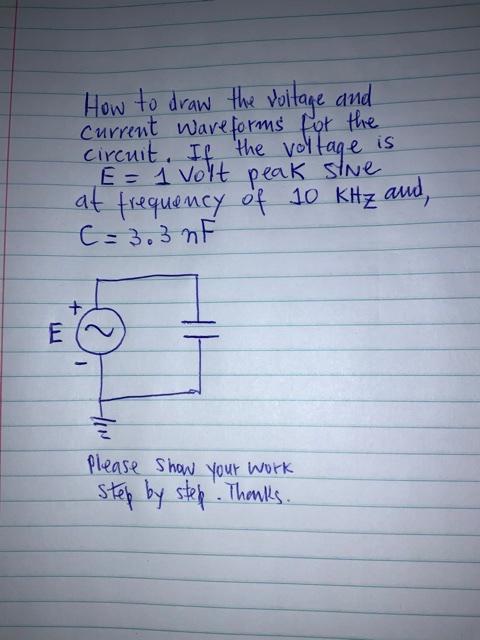 How to draw the voltage and
current waveforms for the
circuit. If the voltage is
E = 1 Volt peak sine
at frequency of 10 KHz and,
C = 3.3 nF
+
E
-
Please show your work
step by step. Thanks.